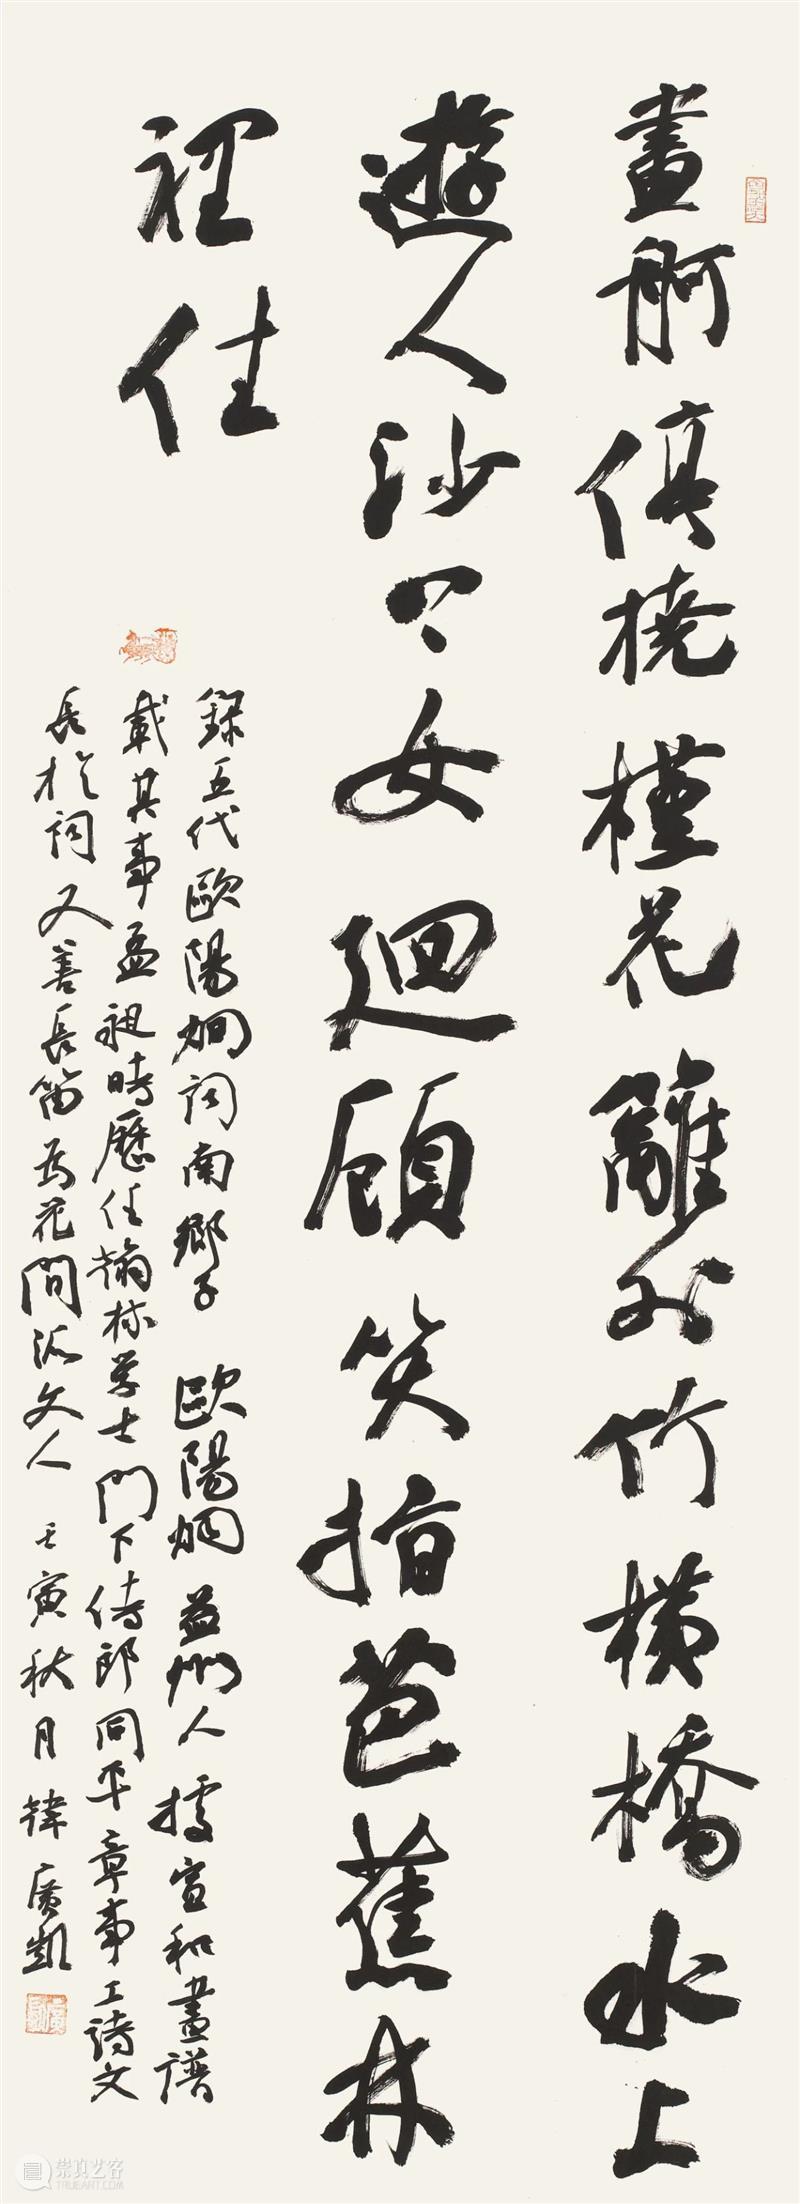 畫舸停橈槿花籬外竹橫橋水上
遊人沙上女迴顧笑指芭蕉林
裡住
錄五代歐陽炯詞南鄉子 歐陽炯益州人據宣和畫譜
載其事孟昶時歷任翰林学士門下侍郎同平章事工詩文
長於詞又善長笛为花間派文人 壬寅秋月韓廣凱
崇真艺客
TRUEART.COM